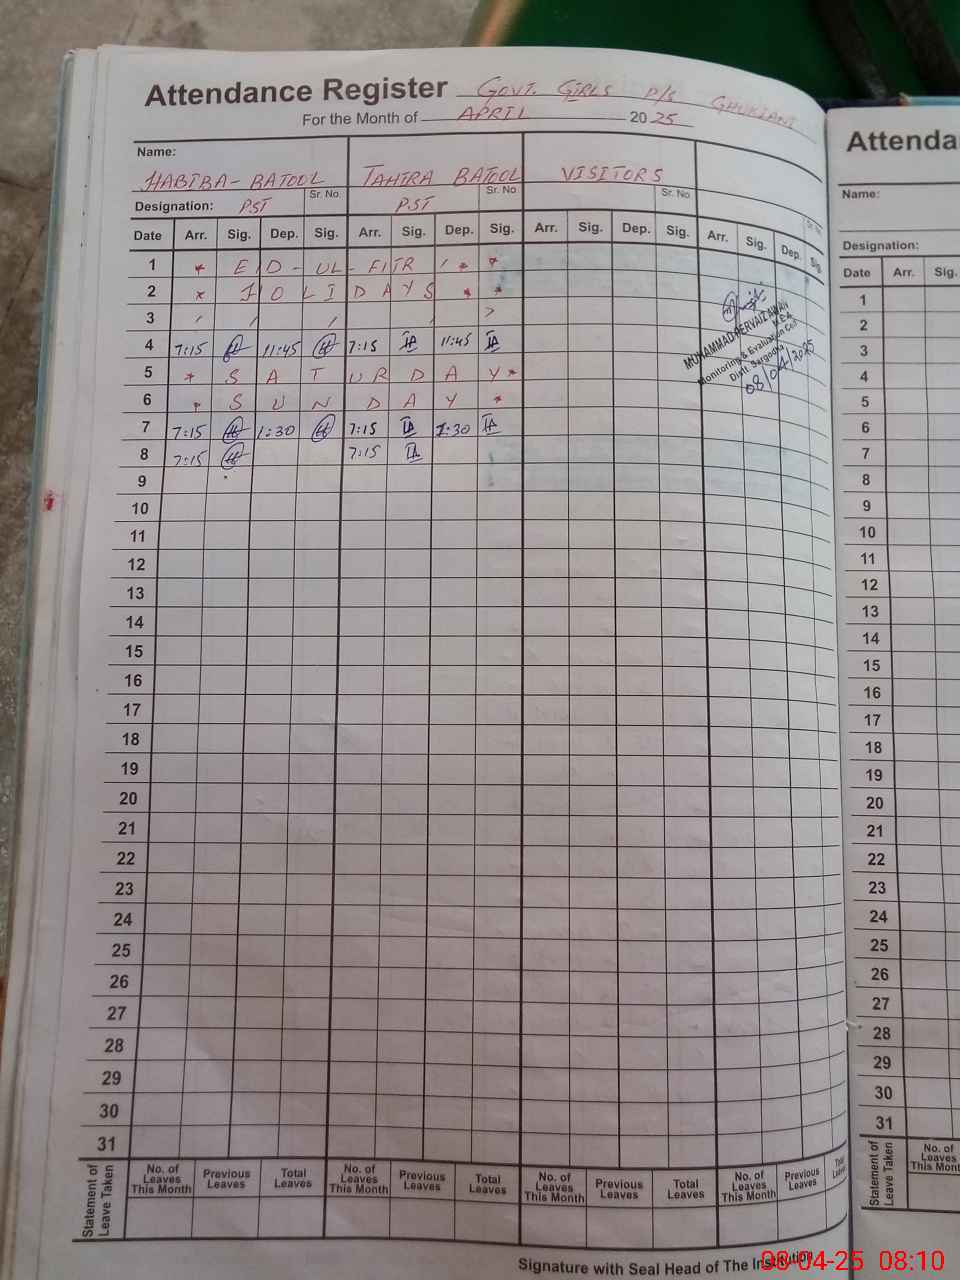 Attendance Register GOVT. GIRLS P/S GHUKLANI
For the Month of APRIL 2025
Name:
HABIBA-BATOOL TAHIRA BATOOL VISITORS
Designation: PST Sr. No. PST Sr. No. Sr. No. Sr. No.
Date Arr. Sig. Dep. Sig. Arr. Sig. Dep. Sig. Arr. Sig. Dep. Sig. Arr. Sig. Dep. Sig.
1 * EID-UL-FITR * *
2 * HOLIDAYS * *
3
4 7:15 11:45 7:15 11:45
5 * SATURDAY *
6 * SUNDAY *
7 7:15 1:30 7:15 1:30
8 7:15 7:15
9
10
11
12
13
14
15
16
17
18
19
20
21
22
23
24
25
26
27
28
29
30
31
MUHAMMAD PERVAIZ AWAN
M.E.A
Monitoring & Evaluation Cell
Distt. Sargodha
08/04/2025
Statement of Leave Taken
No. of Leaves This Month Previous Leaves Total Leaves No. of Leaves This Month Previous Leaves Total Leaves No. of Leaves This Month Previous Leaves Total Leaves No. of Leaves This Month Previous Leaves Total Leaves
Signature with Seal Head of The Institution
Attenda
Name:
Designation:
Date Arr. Sig.
1
2
3
4
5
6
7
8
9
10
11
12
13
14
15
16
17
18
19
20
21
22
23
24
25
26
27
28
29
30
31
Statement of Leave Taken
No. of Leaves This Month
08-04-25 08:10